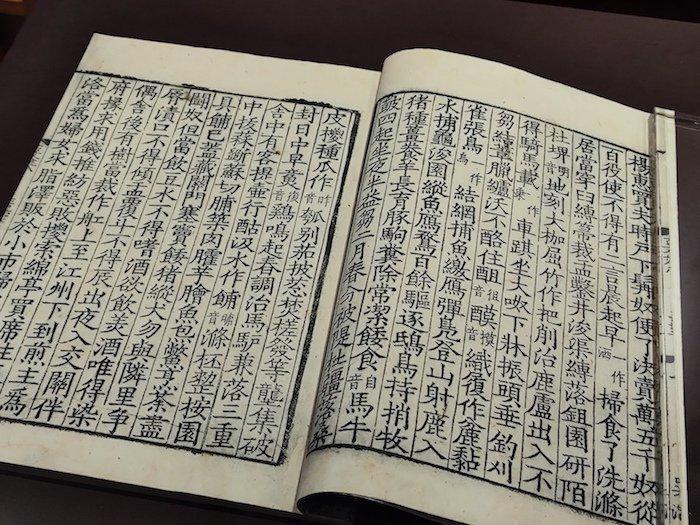 楊惠買夫時戶下髯奴便了決賣萬五千奴從
百役使不得有二言晨起早一作洒掃食了洗滌
居當穿臼縛箒裁盂鑿井浚渠縛落鉏園研陌
杜埤地刻大枷屈竹作杷削治鹿盧出入不
得騎馬載作乘車踑坐大呶下牀振頭垂釣刈
芻結葦臘纑沃不酪住䣯音徂音摸織履作麤黏
雀張鳥結網捕魚繳鴈彈鳧登山射鹿入
水捕龜浚園縱魚鴈鶩百餘驅逐鴟鳥持捎牧
猪種薑養羊長育豚駒糞除常潔餧食音自馬牛
鼓四起坐夜半益芻二月春分被隄杜疆落桑
皮椶種瓜作瓠別茄披葱焚槎發芋壟集破
封日中早鷄鳴起舂調治馬驢兼落三重
舍中有客提壺行酤汲水作餔滌杯整按園
中拔蒜斷蘇切脯築肉臛芋膾魚炰鼈烹茶盡
具餔已蓋藏關門塞竇餧猪縱犬勿與隣里爭
鬪奴但當飯豆水不得嗜酒欲飲美酒唯得染
脣漬口不得傾盂覆斗不得辰出夜入交關伴
偶舍後有樹當裁作船上至江州下到前主爲
府掾求用錢推紡惡敗㯶索綿亭買席往
當爲婦女求脂澤販於小市歸